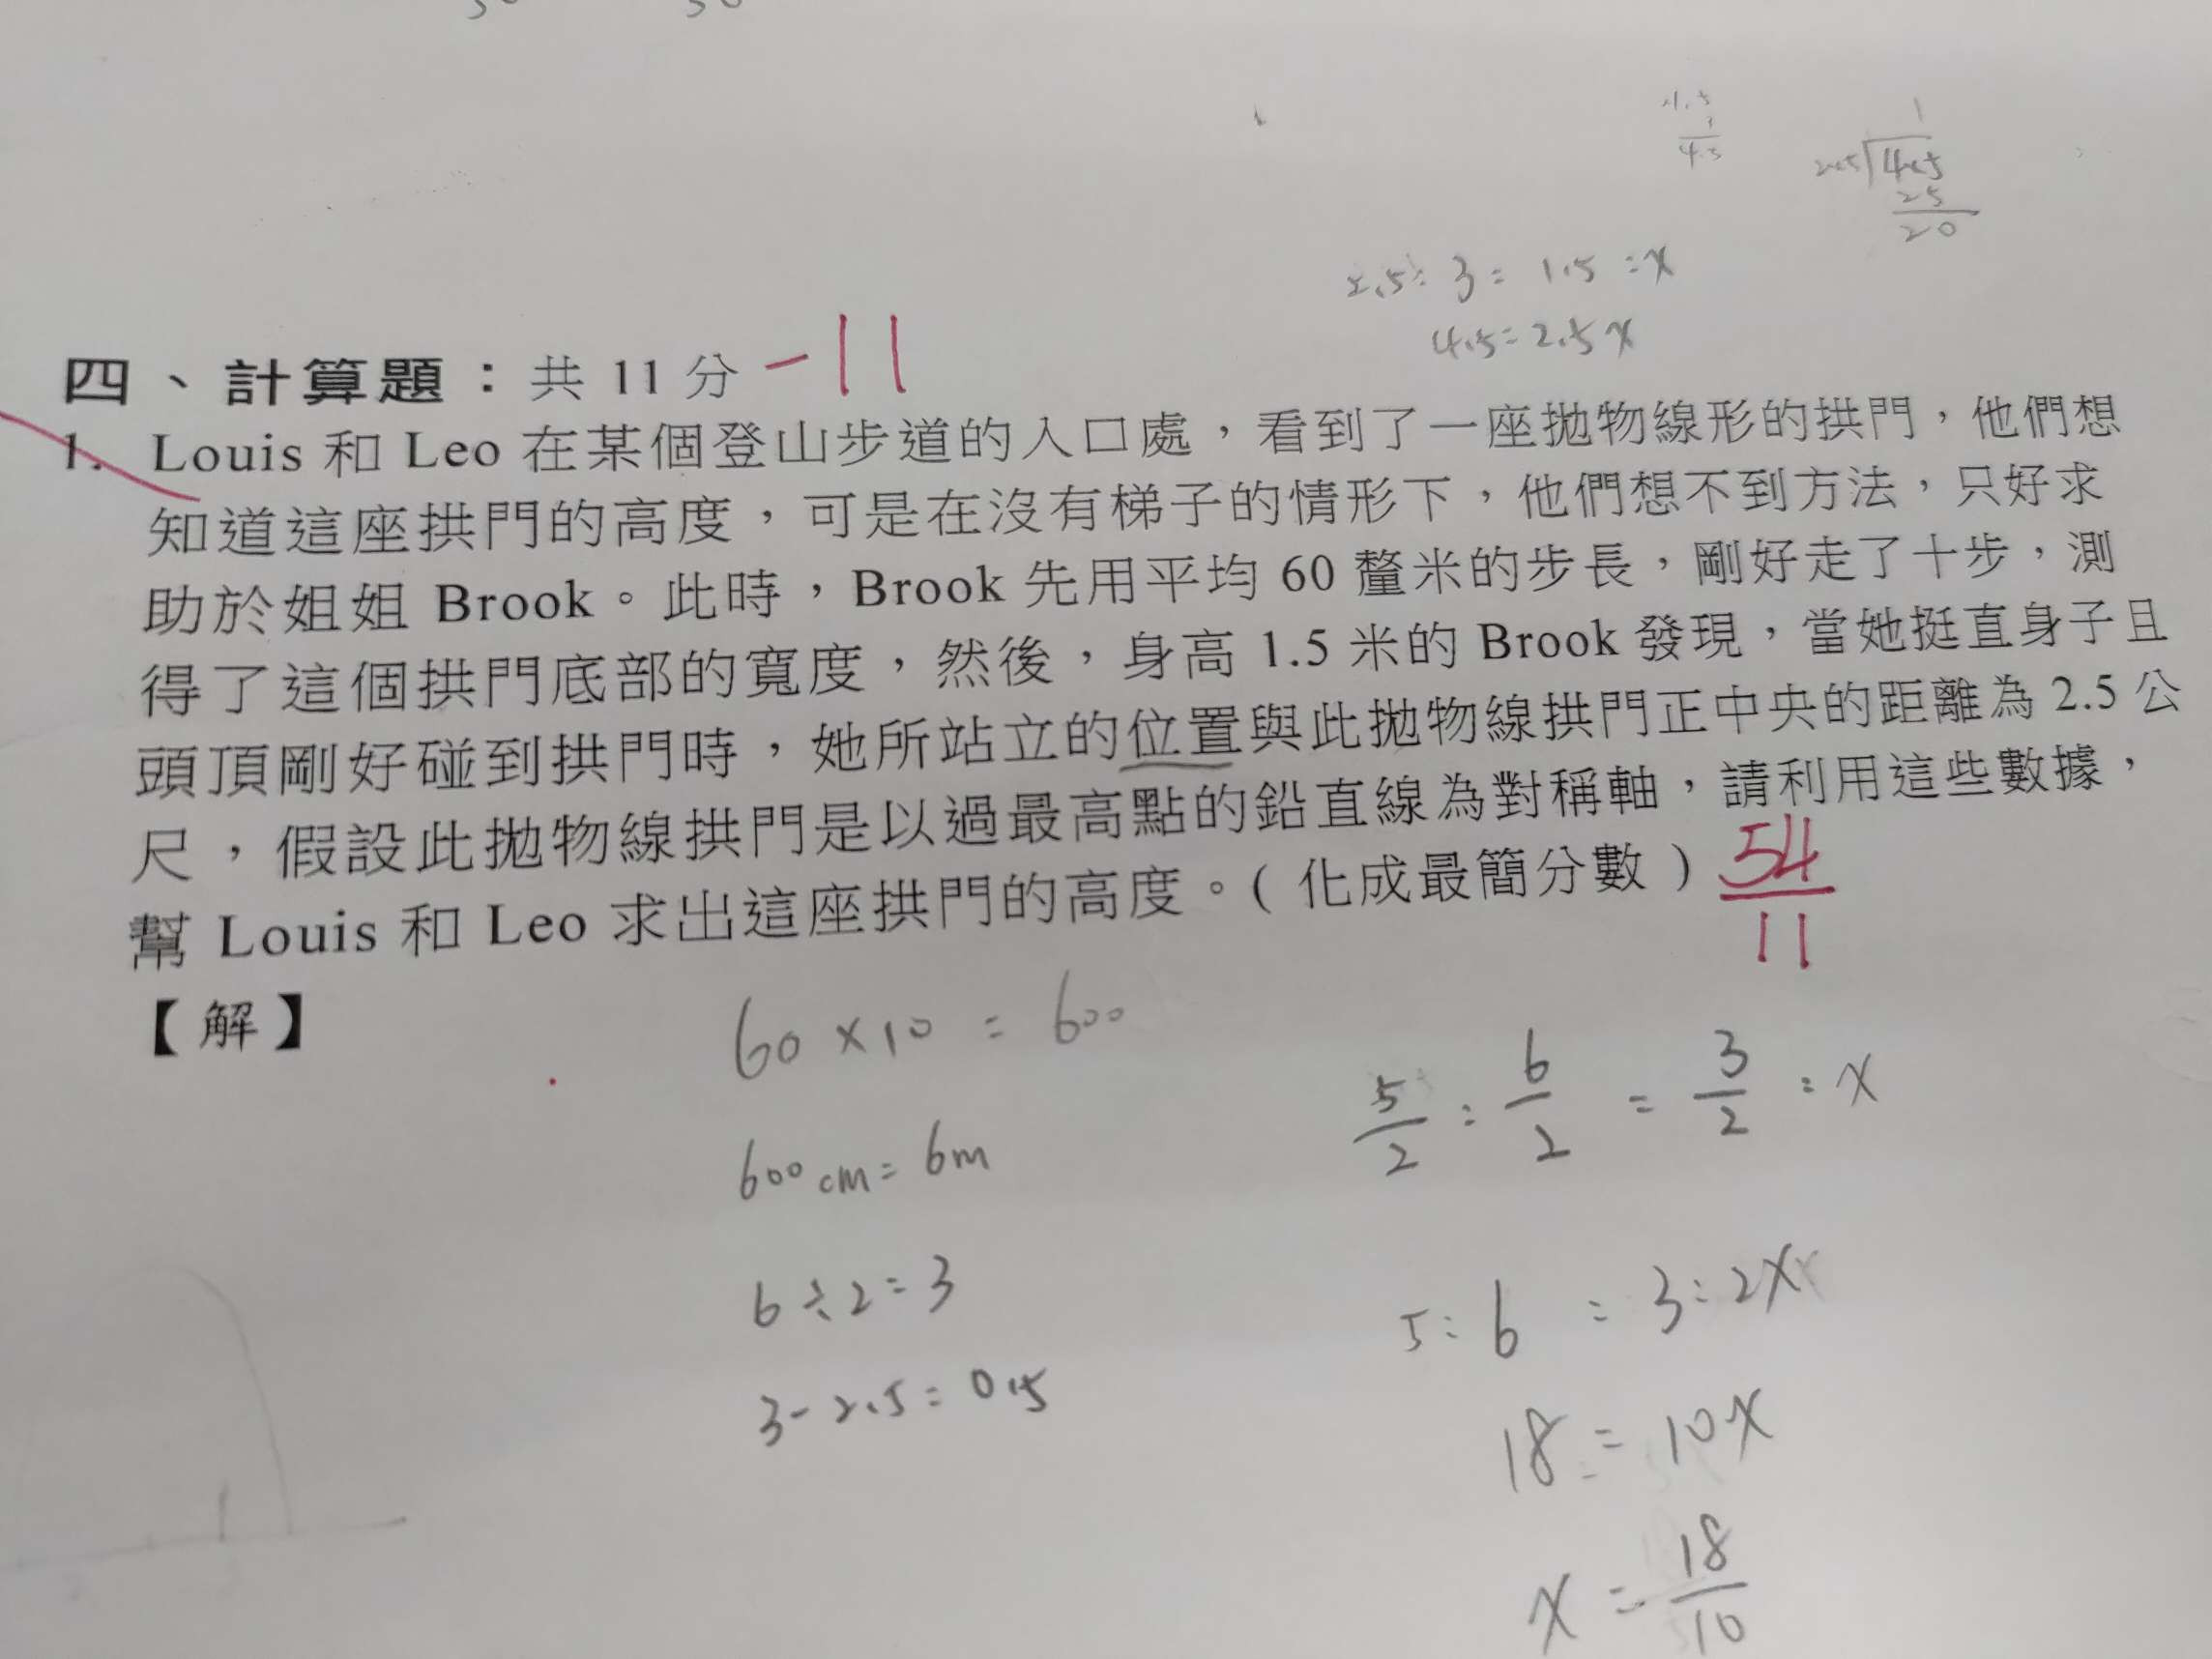 1
4.5
25
20
2.5 : 3 = 1.5 : x
4.5 = 2.5x
四、計算題：共 11 分 -11
1. Louis 和 Leo 在某個登山步道的入口處，看到了一座拋物線形的拱門，他們想
知道這座拱門的高度，可是在沒有梯子的情形下，他們想不到方法，只好求
助於姐姐 Brook。此時，Brook 先用平均 60 釐米的步長，剛好走了十步，測
得了這個拱門底部的寬度，然後，身高 1.5 米的 Brook 發現，當她挺直身子且
頭頂剛好碰到拱門時，她所站立的位置與此拋物線拱門正中央的距離為 2.5 公
尺，假設此拋物線拱門是以過最高點的鉛直線為對稱軸，請利用這些數據，
幫 Louis 和 Leo 求出這座拱門的高度。(化成最簡分數) 54/11
【解】
60 × 10 = 600
600 cm = 6m
6 ÷ 2 = 3
3 - 2.5 = 0.5
5/2 : 6/2 = 3/2 : x
5 : 6 = 3 : 2x
18 = 10x
x = 18/10